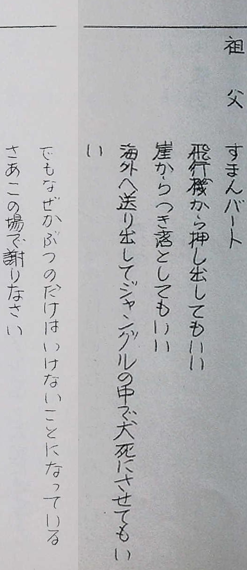 祖父　すまんバート
飛行機から押し出してもいい
崖からつき落としてもいい
海外へ送り出してジャングルの中で犬死にさせてもい
い
でもなぜかぶつのだけはいけないことになっている
さあこの場で謝りなさい